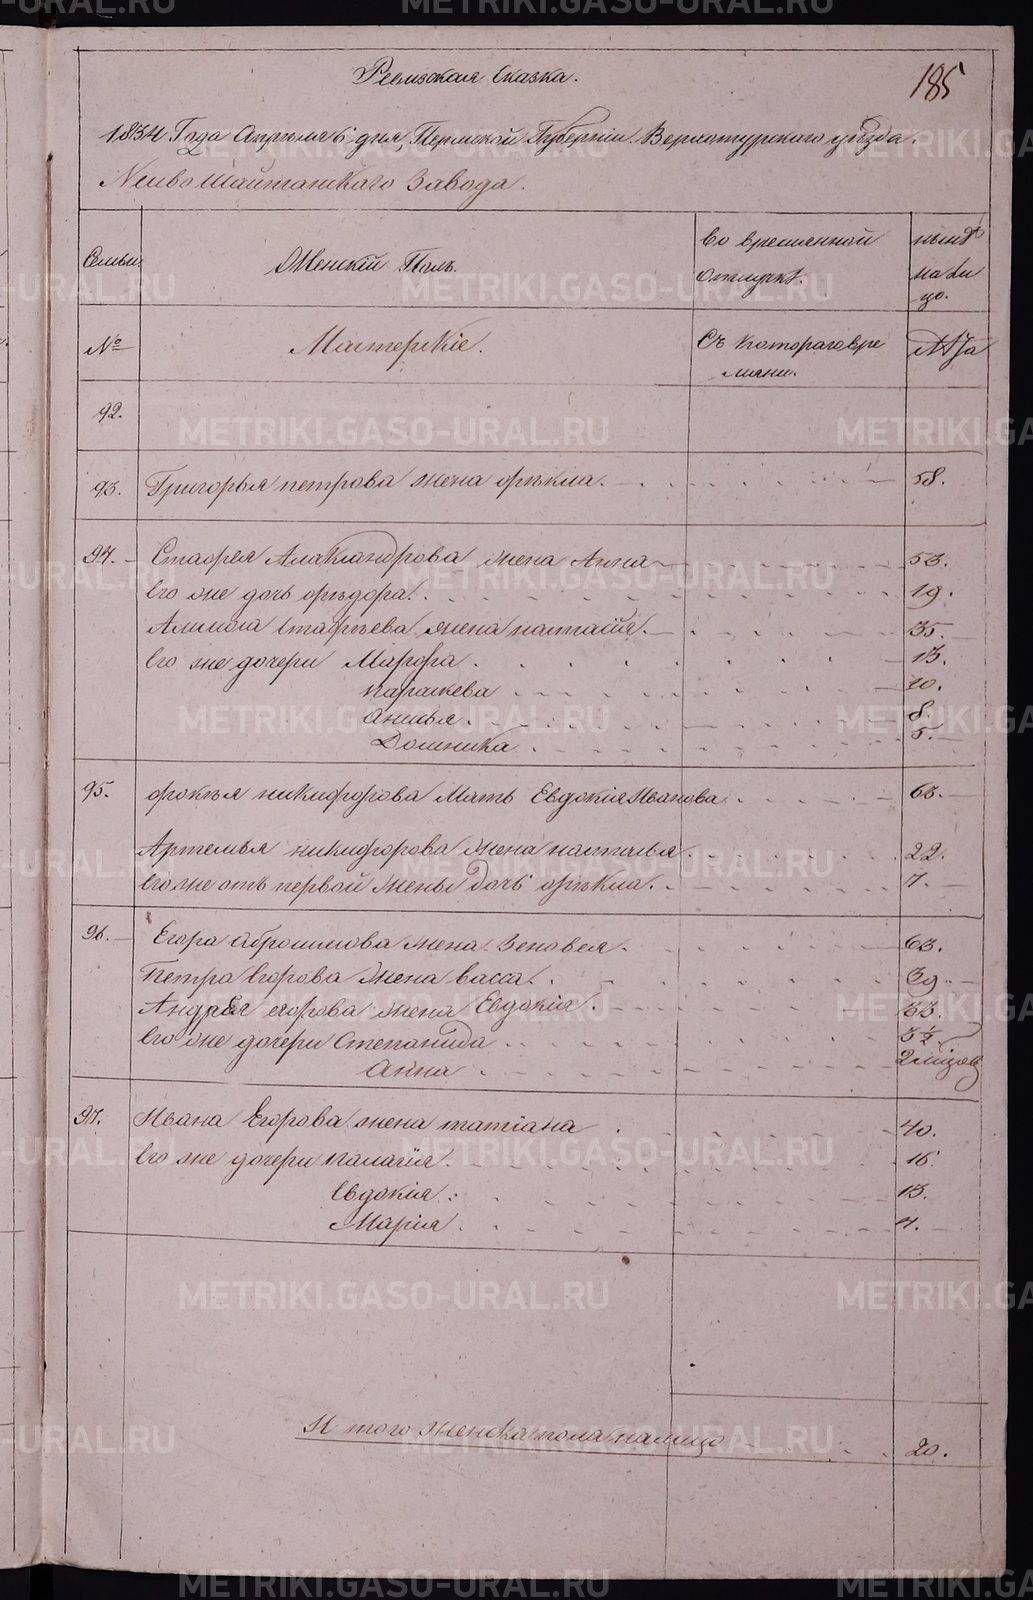 Ревизская Сказка.
185
1834 Года Апреля 6 дня, Пермской Губернии Верхотурского уезда.
Нейво Шайтанского Завода.
Семьи.
Женскій Полъ.
Во временной отлучкѣ.
нынѣ на ли цо.
№
Мастерскіе.
Съ котораго вре мяни.
Лѣта
92.
93. Григорья петрова жена фекла. 58.
94. Стафея Алаксандрова жена Анна 53.
Его же дочь федора. 19.
Стафеева жена настасія. 35.
Его же дочери Марфа. 13.
парасковья 10.
Анисья. 8.
Домника. 5.
95. никифорова Мать Евдокія Иванова. 63.
Артемья никифорова жена наталья. 22.
Его же отъ первой жены дочь фекла. 7.
96. Егора аброшимова жена Зеновея. 63.
Петра Егорова жена васса. 39.
Андрея егорова жена Евдокія.
Его же дочери Степанида
Анна 2 мѣсяц
97. Ивана Егорова жена татіана 40.
Его же дочери палагія. 16.
Евдокія. 13.
Марія. 4.
И того женска пола налицо 20.
METRIKI.GASO-URAL.RU